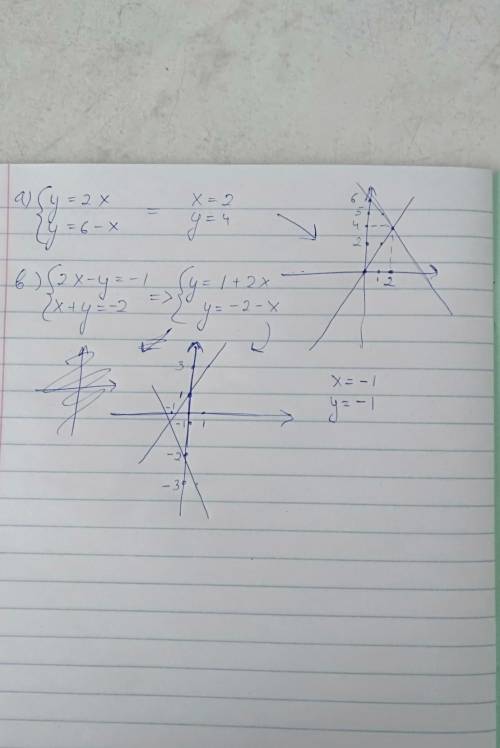 а) { y = 2x
y = 6 - x = x = 2
y = 4
6
5
4
2
1 2
в) { 2x - y = -1
x + y = -2 => { y = 1 + 2x
y = -2 - x
3
1
-1
-1 1
-2
-3
x = -1
y = -1